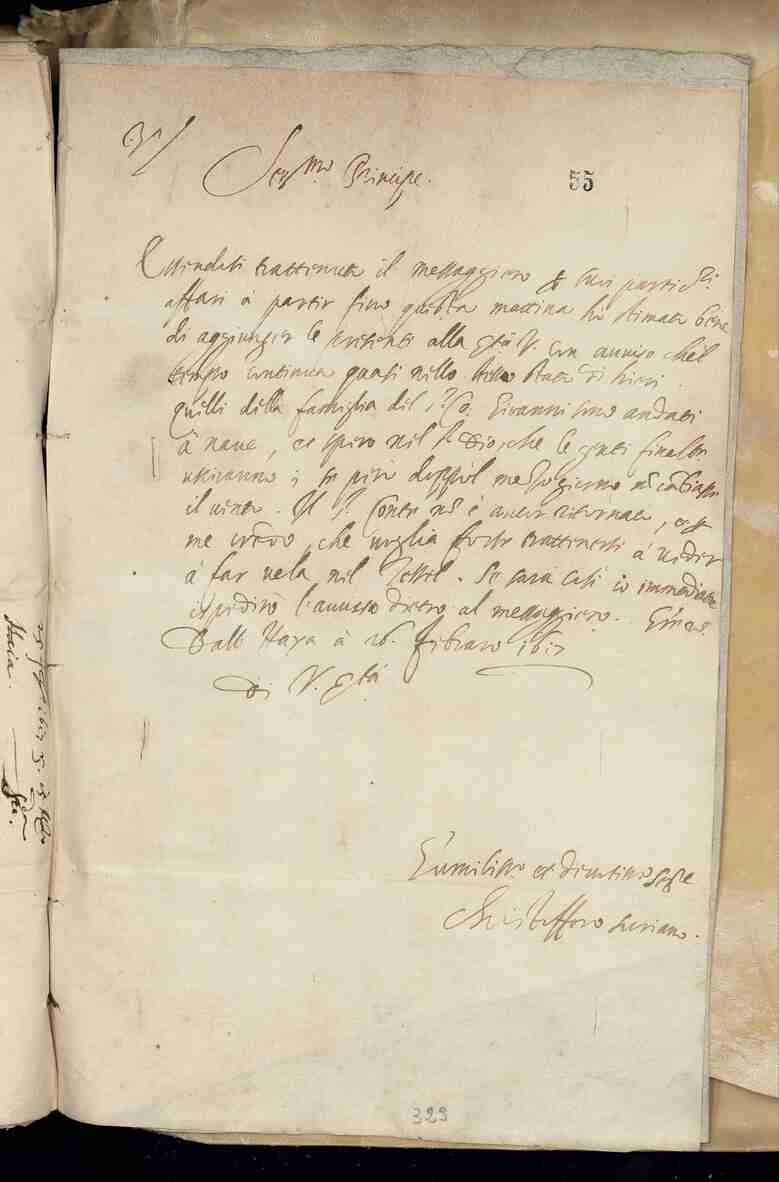 Ser.mo Principe.
55
Essendosi trattenuto il messaggiero per suoi partic.ri
affari à partir fino questa mattina hò stimato bene
di aggiunger le presenti alla Ser.tà V. con avviso che'l
tempo continua quasi nello stesso stato di hieri.
quelli della famiglia del s.r Co. Giovanni sono andati
à nave, et spero nel s.r Dio, che le genti finalm.te
usciranno; se però doppo'l mezo giorno nõ cambiasse
il vento. Il s.r Conte nõ è ancor ritornato, et per
me credo, che voglia forse trattenersi à veder
à far vela nel Tessel. Se sarà così io immediate
espedirò l'avviso dietro al messaggiero. Gratie.
Dall' Haya à 26. Febraro 1617
Di V. Ser.tà
Humiliss.o et Devotiss.o ser.re
Christofforo Suriano.
329
Haia.